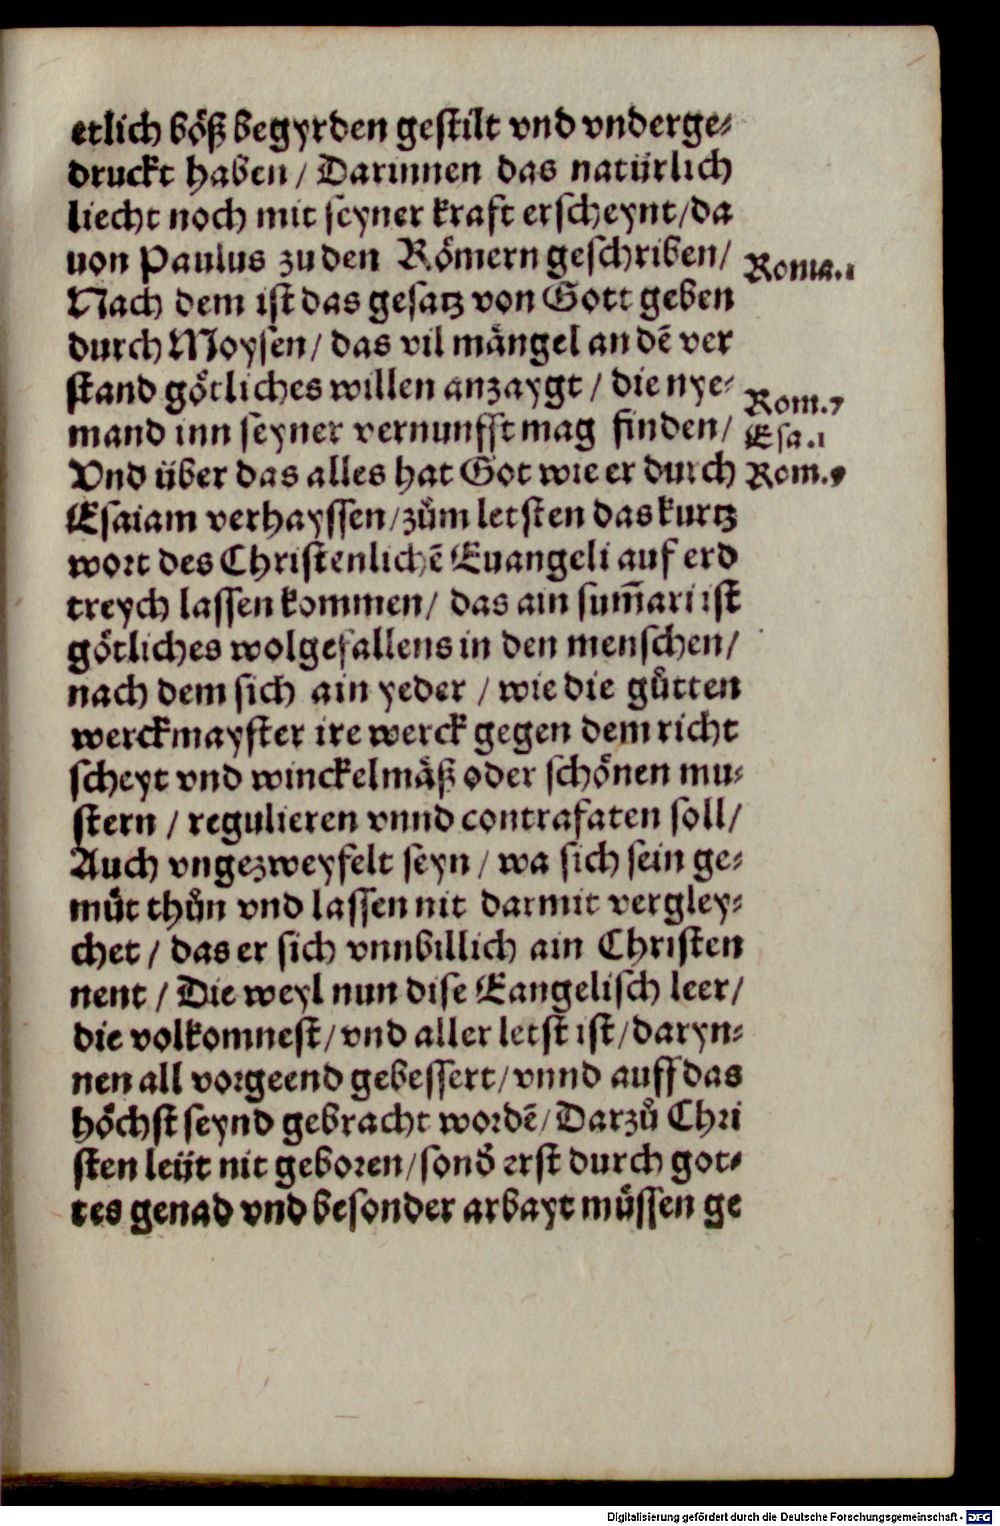 etlich böß begyrden gestilt vnd vnderge⸗
druckt haben / Darinnen das natürlich
liecht noch mit seyner kraft erscheynt/da
uon Paulus zu den Römern geschriben/ Roma.1
Nach dem ist das gesatz von Gott geben
durch Moysen/ das vil mängel an dē ver
stand götliches willen anzaygt / die nye⸗ Rom.7
mand inn seyner vernunfft mag finden/ Esa.1
Vnd über das alles hat Got wie er durch Rom.9
Esaiam verhayssen/zům letsten das kurtz
wort des Christenlichē Euangeli auf erd
treych lassen kommen/ das ain sum̄ari ist
götliches wolgefallens in den menschen/
nach dem sich ain yeder / wie die gůtten
werckmayster ire werck gegen dem richt
scheyt vnd winckelmäß oder schönen mu⸗
stern / regulieren vnnd contrafaten soll/
Auch vngezweyfelt seyn / wa sich sein ge⸗
můt thůn vnd lassen nit darmit vergley⸗
chet / das er sich vnnbillich ain Christen
nent / Die weyl nun dise Eangelisch leer/
die volkomnest/vnd aller letst ist/daryn⸗
nen all vorgeend gebessert/vnnd auff das
höchst seynd gebracht wordē/Darzů Chri
sten leüt nit geboren/sond̕ erst durch got⸗
tes genad vnd besonder arbayt müssen ge
Digitalisierung gefördert durch die Deutsche Forschungsgemeinschaft - DFG